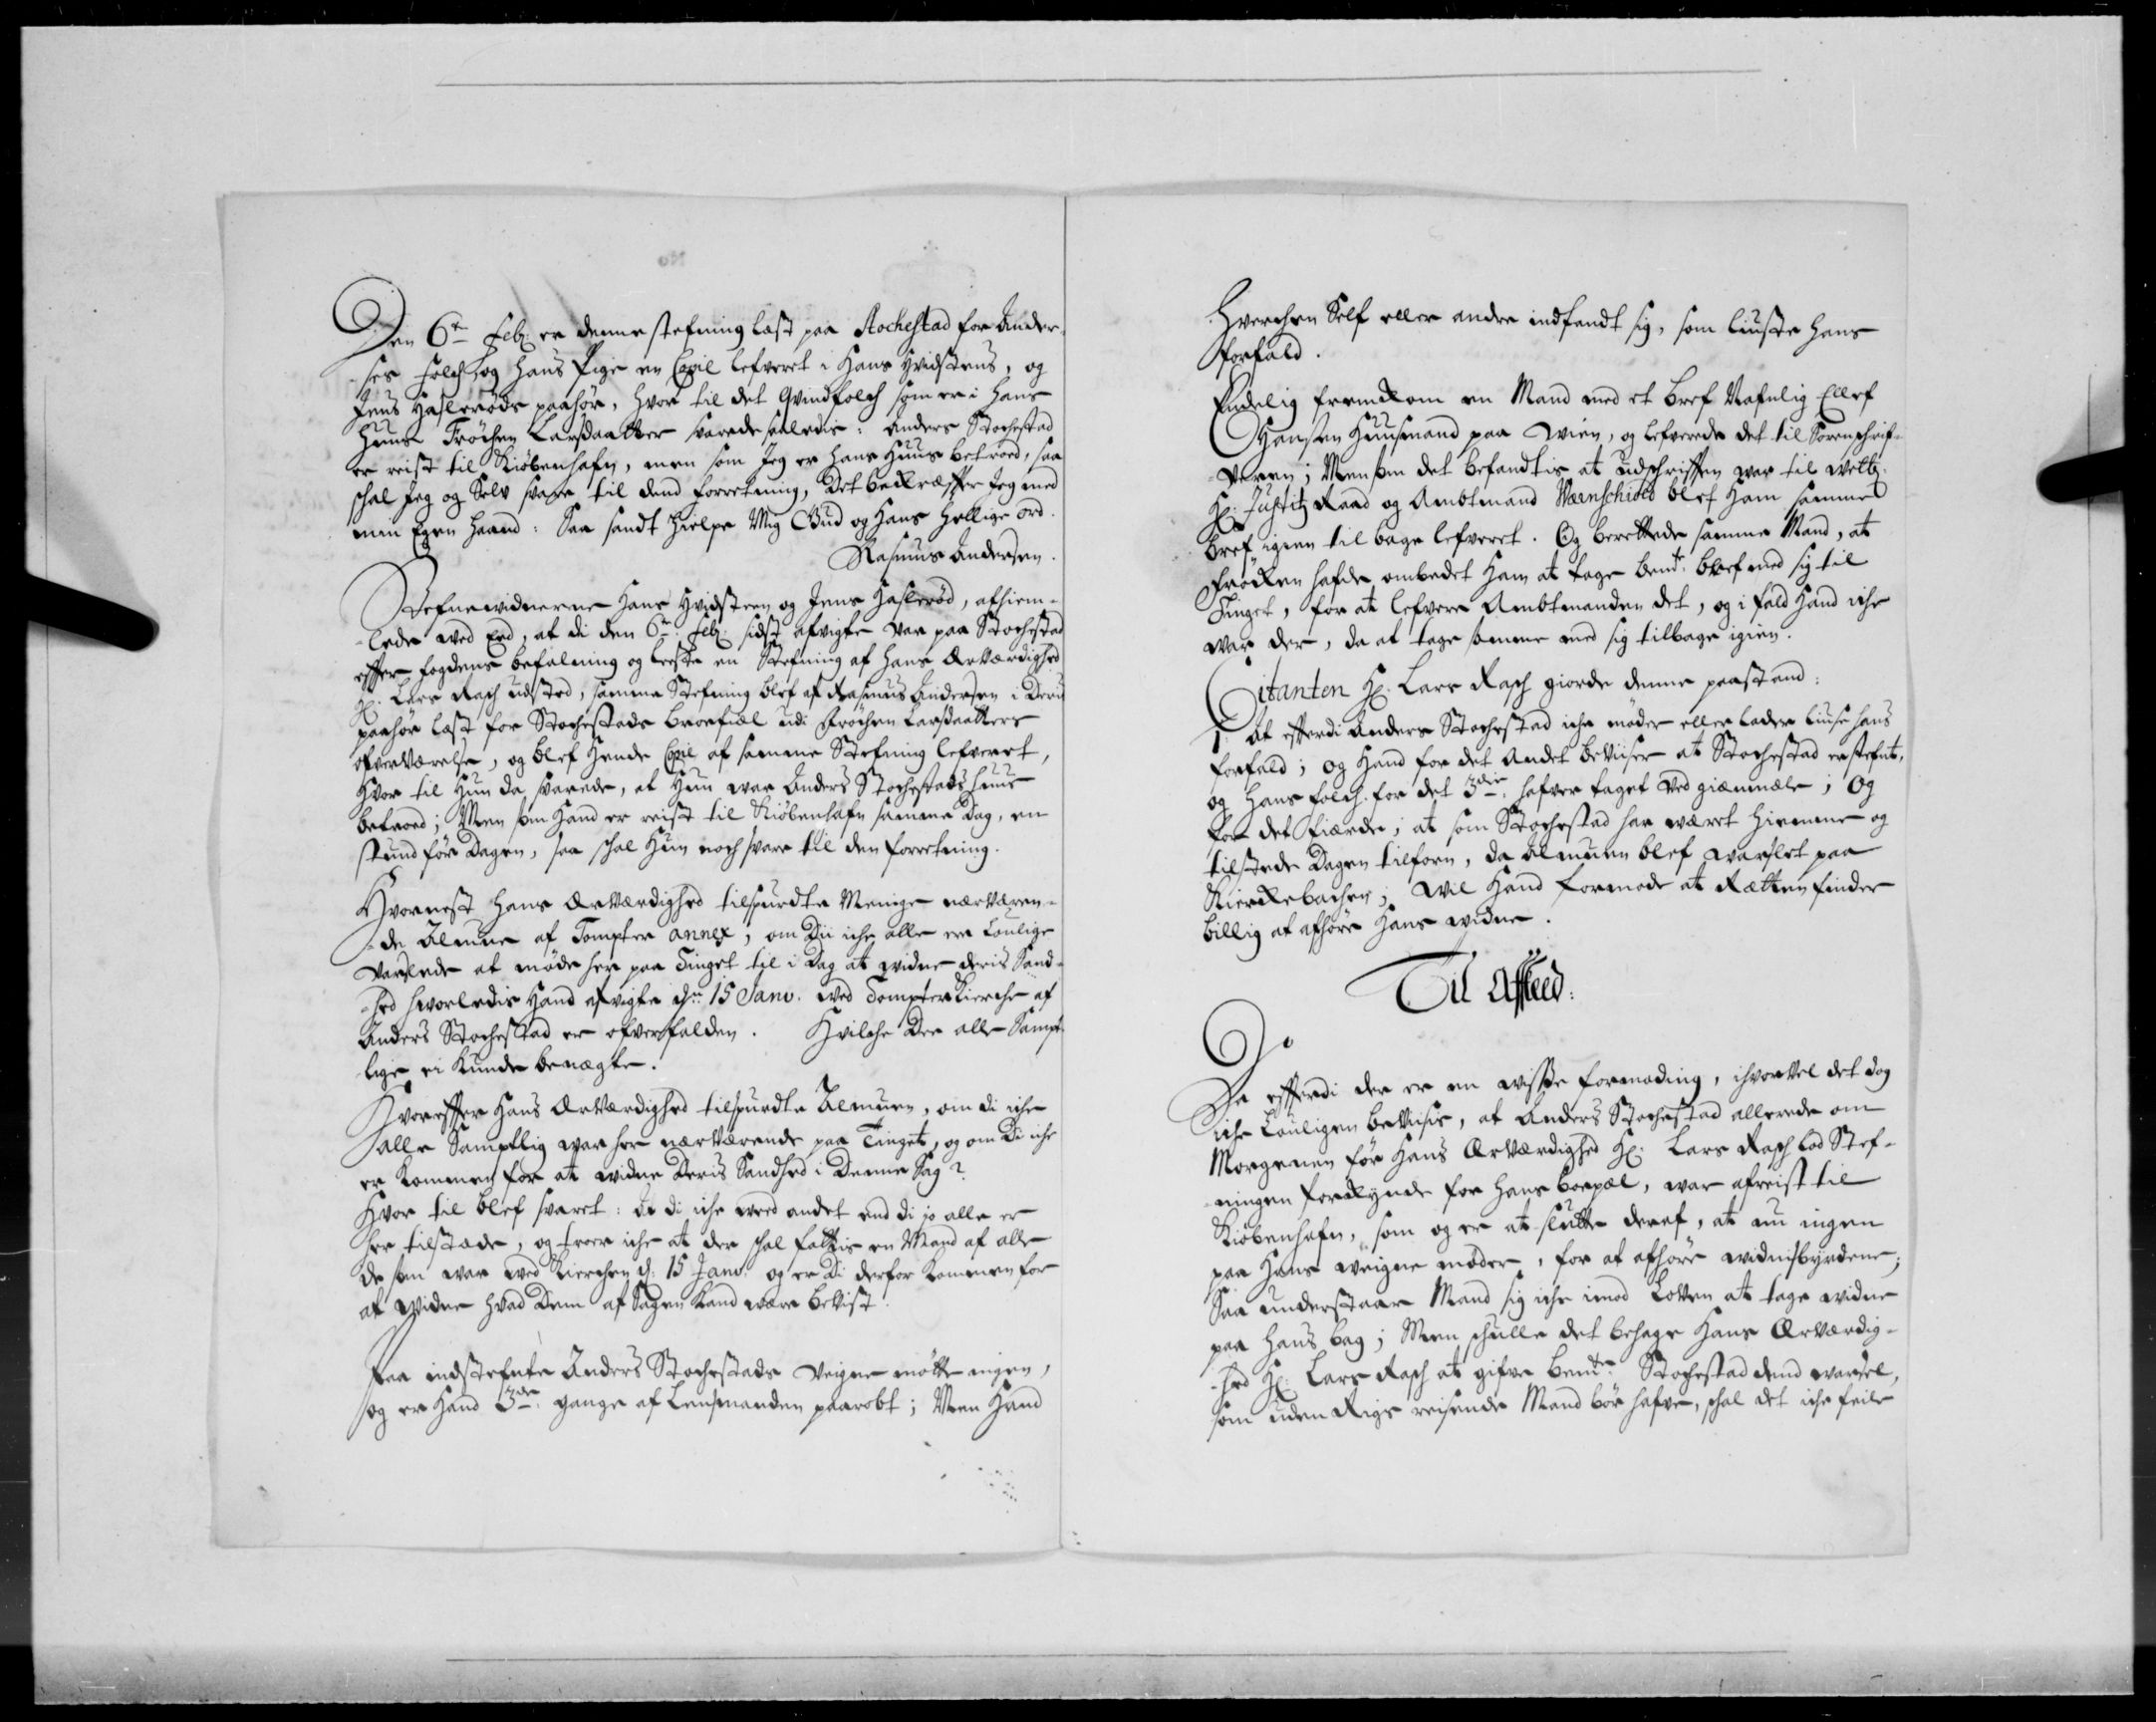 Den 6te Feb: er denne stefning læst paa Stochestad for Ander-
ses folch, og hans Pige en Copie lefveret i Hans Hvidstens, og
Jens Haslerøds paahør, hvor til det qvindfolch som er i hans
Huus Frøchen Larsdaatter svarede saaledis: Anders Stochestad
er reist til Kiøbenhafn, men som Jeg er hans Huus betroed, saa
schal Jeg og Selv svare til dend forretning, Det bekræffter Jeg med
min Egen haand: Saa sandt hielpe Mig Gud og hans hellige ord.
Rasmus Andersen.
Stefnewidnerne Hans Hvidsteen og Jens Haslerød, afhiem-
lede med Eed, at di den 6te Feb: sidst afvigte var paa Stochestad
effter fogdens befalning og leste en Stefning af Hans Ærværdighed
Hr: Lars Rasch udsted, samme Stefning blef af Rasmus Andersen i Deris
paahør læst for Stochestads boepæl udi Frøchen Larsdaatters
ofverværelse, og blef Hende Copie af samme Stefning lefveret,
Hvor til Hun da svarede, at Hun war Anders Stochestads huus
betroed; Men som Hand er reist til Kiøbenhafn samme Dag, en
stund før Dagen, saa schal Hun noch svare til den forretning.
Hvornest Hans Ærværdighed tilspurdte Menige nærværen-
de Almue af Tompter annex, om Dii iche alle ere Loulige
varslede at møde her paa Tinget til i Dag at widne deris Sand-
hed hvorledis Hand afvigte dn 15 Janv. ved Tompter Kierche af
Anders Stochestad er ofverfalden. Hvilche Der alle Sampt-
lige ei kunde benægte.
Hvoreffter Hans Ærværdighed tilspurdte Almuen, om di iche
alle Samptlig war her nærværende paa Tinget, og om Di iche
er kommen for at widne Deris Sandhed i Denne Sag?
Hvor til blef svaret: At di iche weed andet end di jo alle er
her tilstæde, og troer iche at der schal fattis en Mand af alle
de som war wed Kierchen d: 15 Janv: og er Di derfor kommen for
at Widne hvad Dem af Sagen kand være beVist.
Paa indstefnte Anders Stochestads Veigne møtte ingen,
og er Hand 3de gange af Lensmanden paarobt; Men Hand
Hverchen Self eller andre indfandt sig, som liuste hans
forfald.
Endelig fremkom en Mand med et bref Nafnlig Ellef
Hansen Huusmand paa Wien, og lefverede det til Sorenschrif-
veren; Men som det befandtis at udschriften war til Welb:
Hr: Justitz Raad og Ambtmand Wærnschiold blef Ham samme
bref igien til bage lefveret. Og berettede samme Mand, at
Frøcken hafde ombedet Ham at tage bemte: bref med sig til
Tinget, for at lefvere Ambtmanden det, og i fald Hand iche
war der, da at tage samme med sig tilbage igien.
Citanten Hr: Lars Rasch giorde denne paastand:
1: At efftterdi Anders Stochestad iche møder eller lader liuse hans
forfald; og Hand for det Andet beviiser at Stochestad er stefnt,
og hans folch. for det 3die hafver taget Ved giænmæle; Og
for det fierde; at som Stochestad har været hiemme og
tilstede Dagen tilforn, da Almuen blef warslet paa
Kierkebachen; Wil Hand formode at Rætten finder
billig at afhøre Hans widne.
Til Affskeed:
Da effterdi der er en wisse formoding, ihvorvel det dog
iche Louligen beVisis, at Anders Stochestad allerede om
Morgenen før Hans Ærværdighed Hr: Lars Rasch lod Stef-
ningen forkynde for hans boepæl, war afreist til
Kiøbenhafn, som og er at slutte deraf, at nu ingen
paa Hans weigne møder, for at afhøre widnisbyrdene;
Saa understaar Mand sig iche imod Loven at tage widne
paa hans bag; Men schulle det behage Hans Ærværdig-
hed Hr: Lars Rasch at gifve bemte Stochestad dend warsel,
som uden Rigs reisende Mand bør hafve, schal det iche feile